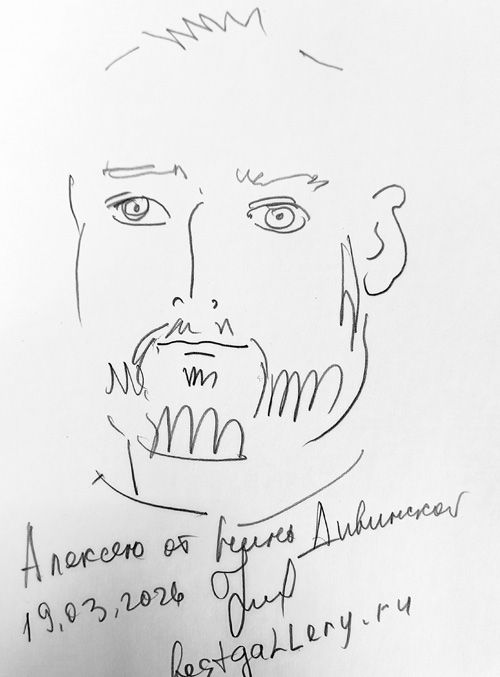 Алексею от Елены Дивинской
19.03.2026
Bestgallery.ru